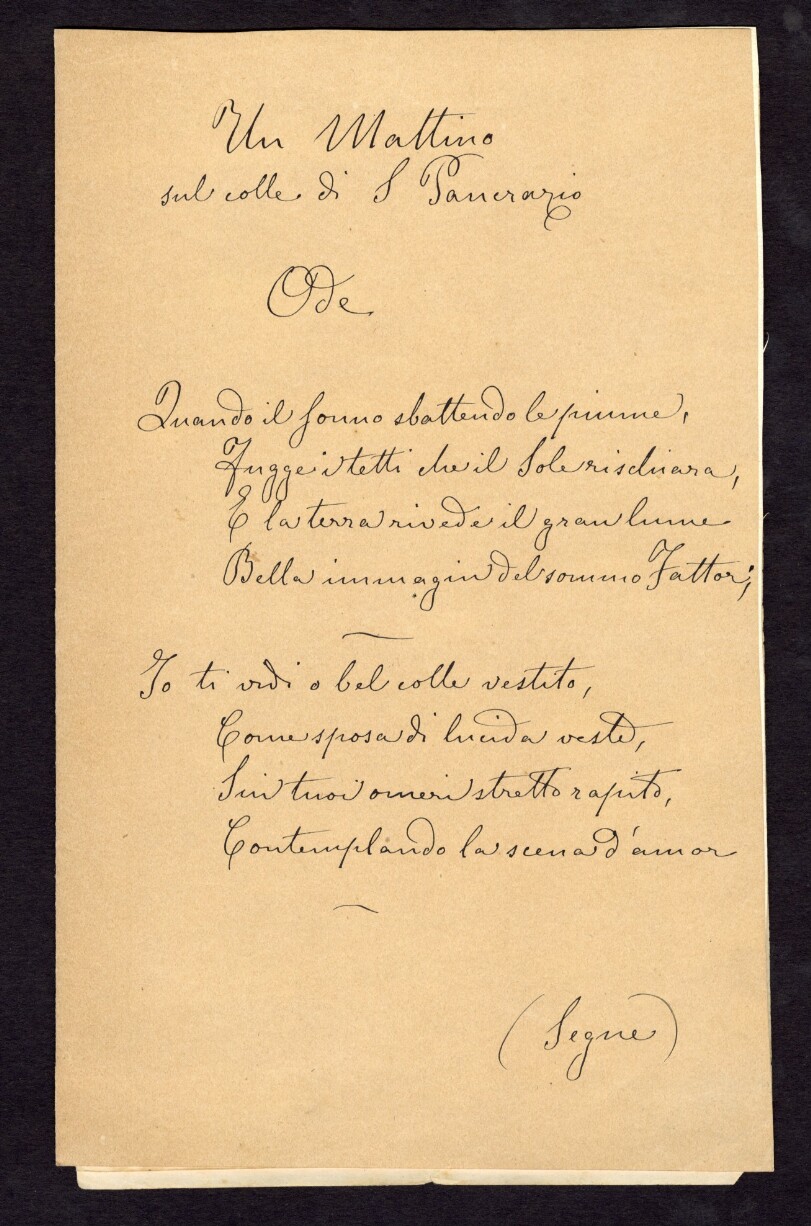 Un Mattino
sul colle di S Pancrazio
Ode
Quando il sonno sbattendo le piume,
Fugge i tetti che il Sole rischiara,
E la terra rivede il gran lume
Bella immagin del sommo Fattor;
Io ti vidi o bel colle vestito,
Come sposa di lucida veste,
Sui tuoi omeri stretto rapito,
Contemplando la scena d'amor
(Segue)